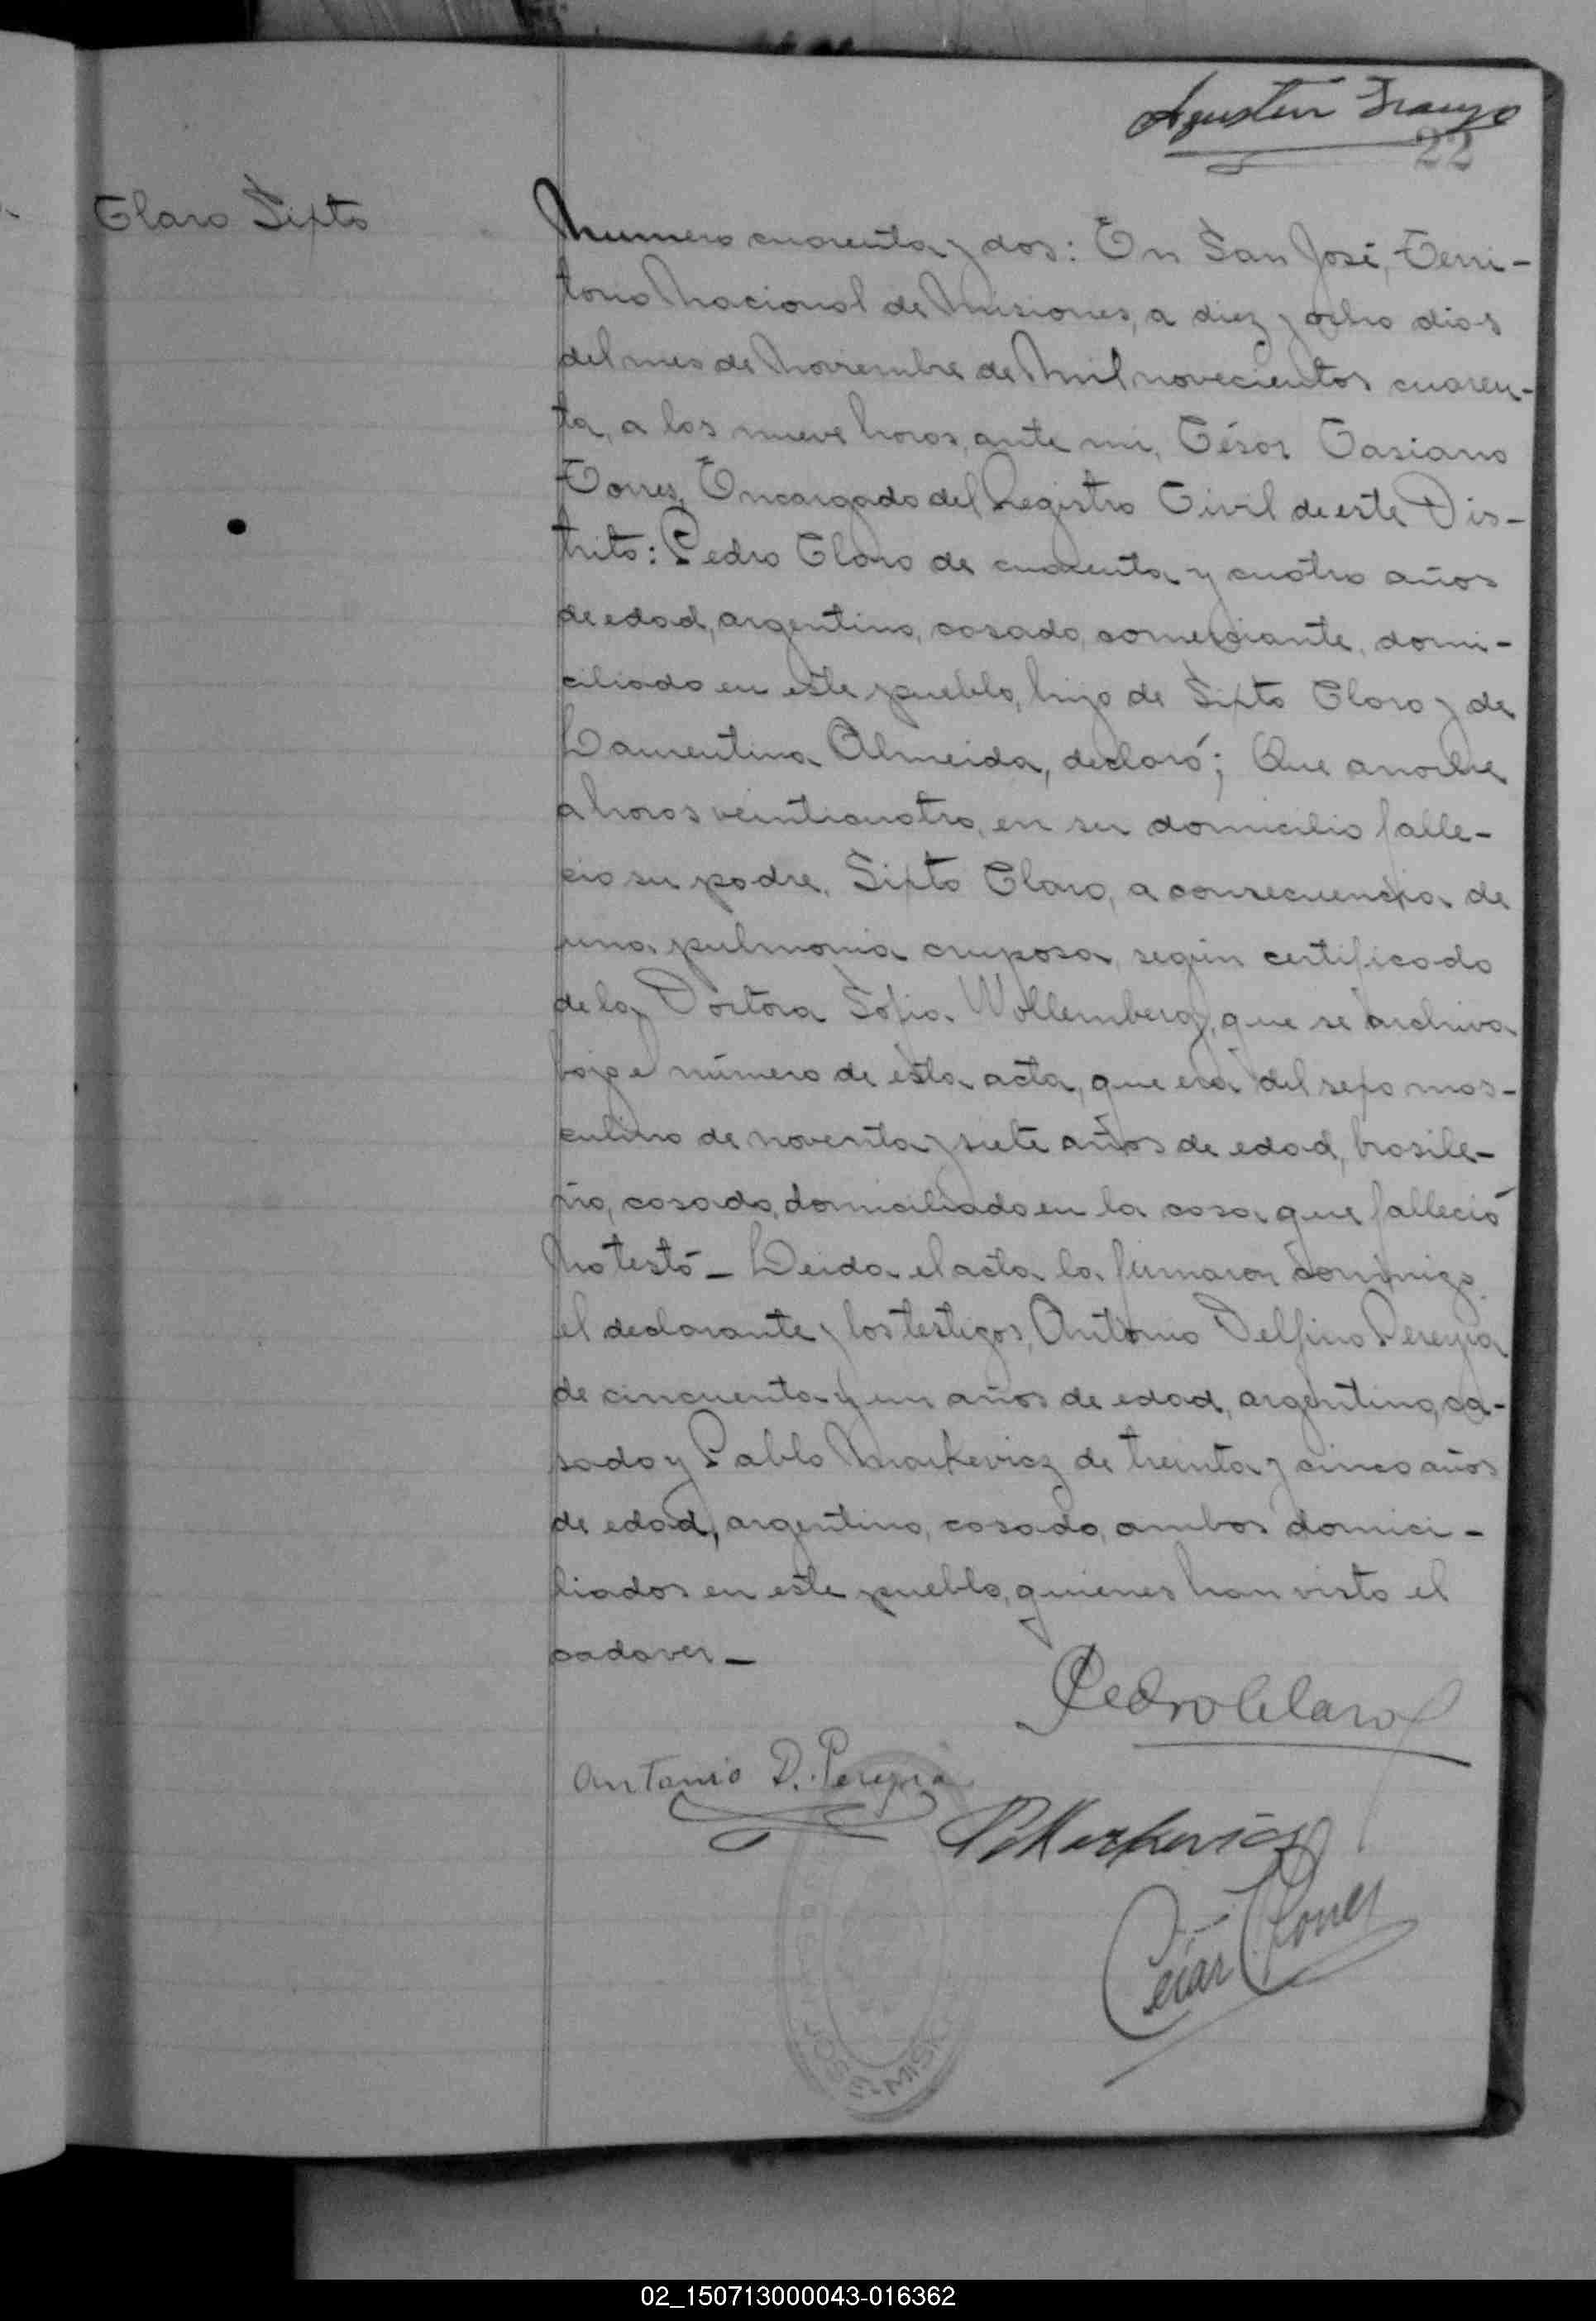 Agustin
22
Claro Sixto
Numero cuarenta y dos: En San José, Terri-
torio Nacional de Misiones, a diez y ocho dias
del mes de Noviembre de Mil novecientos cuaren-
ta, a las nueve horas, ante mi, César Casiano
Torres, Encargado del Registro Civil de este Dis-
trito: Pedro Claro de cuarenta y cuatro años
de edad, argentino, casado, comerciante, domi-
ciliado en este pueblo, hijo de Sixto Claro y de
Laurentina Almeida, declaró; Que anoche
a horas veinticuatro, en su domicilio falle-
cio su padre, Sixto Claro, a consecuencia de
una pulmonia cruposa, según certificado
de la Doctora Sofia Wollemberg, que se archiva
bajo el número de ésta acta, que era del sexo mas-
culino de noventa y siete años de edad, brasile-
ño, casado, domiciliado en la casa que falleció
No testó - Leida el acta la firmaron conmigo
el declarante y los testigos, Antonio Delfino Pereyra
de cincuenta y un años de edad, argentino, ca-
sado y Pablo Markevicz de treinta y cinco años
de edad, argentino, casado, ambos domici-
liados en este pueblo, quienes han visto el
cadaver -
Pedro Claro
Antonio D. Pereyra
P. Markevicz
César C. Torres
JOSE MIS
02_150713000043-016362